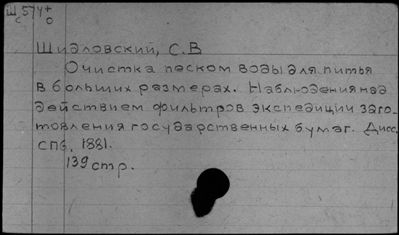 Ш 574+
с о
Шидловский, С.В
Очистка песком воды для питья
в больших размерах. Наблюдения над
действием фильтров экспедиции заго-
товления государственных бумаг. Дисс.
СПб, 1881.
139 стр.